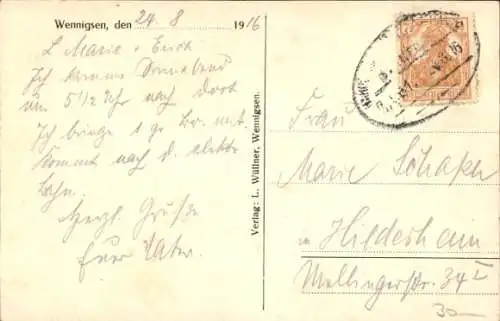 Wennigsen, den 24. 8 1916
L Marie + Erich
Ich komme Sonnabend
um 5 1/2 Uhr nach dort
Ich bringe 1 gr. mit
kommt nach d. elektr
Bhn.
Herzl. Grüße
Euer Vater.
Verlag: L. Wüllner, Wennigsen.
Frau
Marie Schaper
in Hildesheim
34 I
30